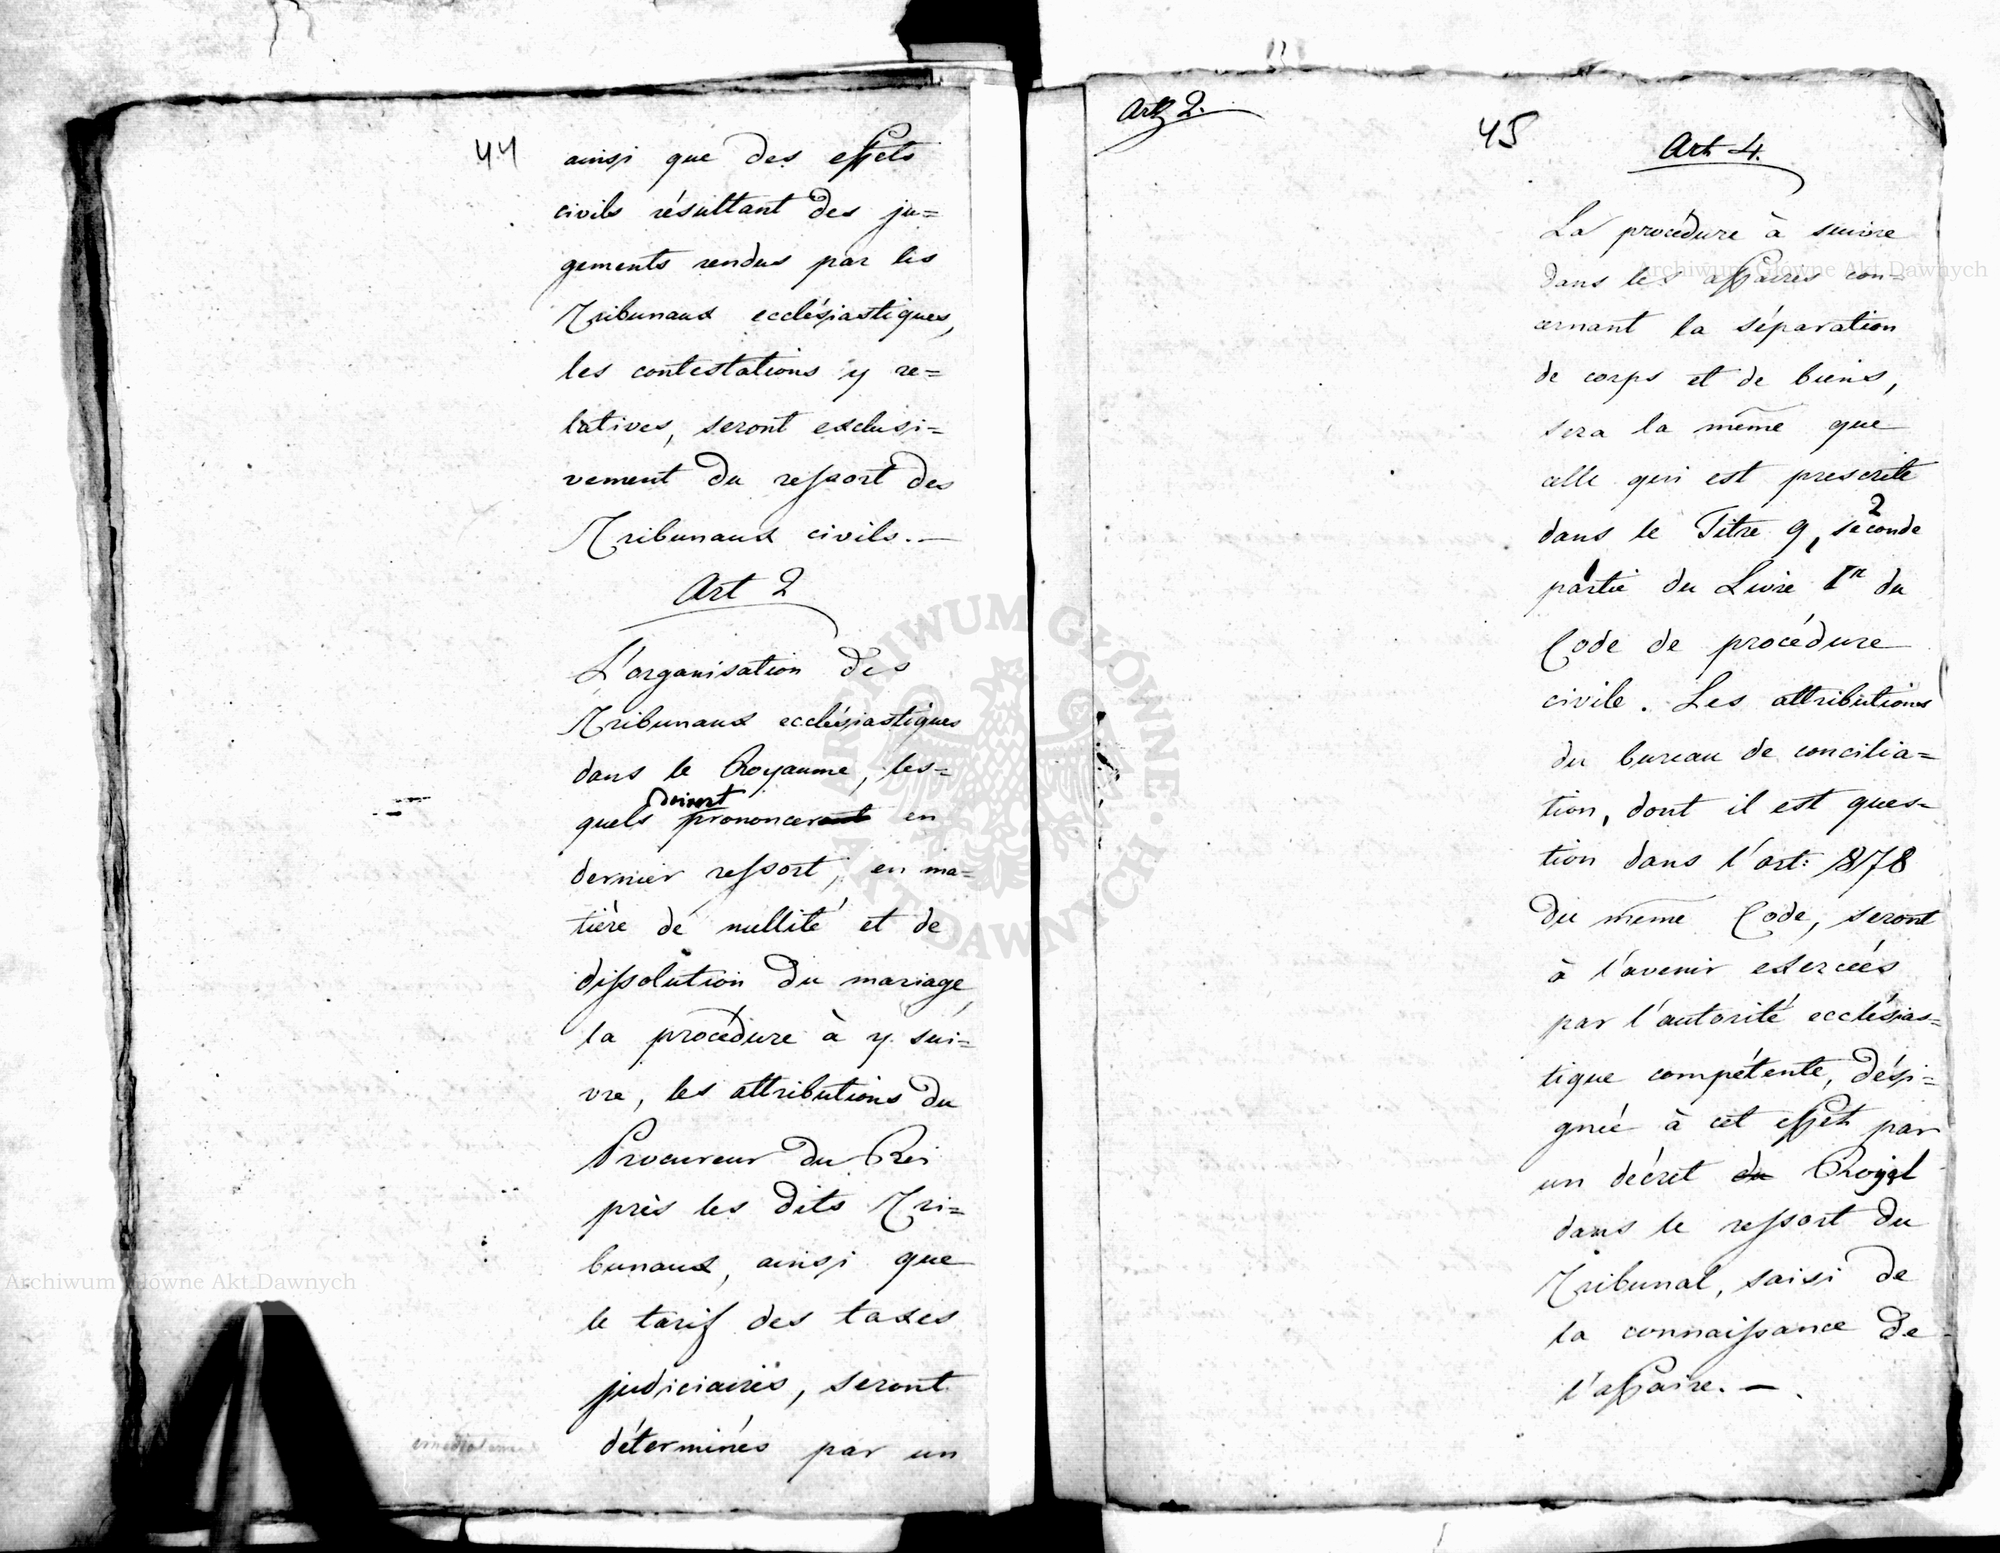 44
ainsi que des effets
civils résultant des ju=
gements rendus par les
Tribunaux ecclésiastiques,
les contestations y re=
latives, seront exclusi=
vement du ressort des
Tribunaux civils. —
Art 2
L'organisation des
Tribunaux ecclésiastiques
dans le Royaume, les=
doivent
quels prononceront en
dernier ressort, en ma=
tière de nullité et de
dissolution du mariage,
la procédure à y sui=
vre, les attributions du
Procureur du Roi
près les dits Tri=
bunaux, ainsi que
le tarif des taxes
judiciaires, seront
déterminés par un
Art 2.
45
Art 4.
La procédure à suivre
dans les affaires con=
cernant la séparation
de corps et de biens,
sera la même que
celle qui est prescrite
2
dans le Titre 9, seconde
partie du Livre 1er du
Code de procédure
civile. Les attributions
du bureau de concilia=
tion, dont il est ques=
tion dans l'art: 878
du même Code, seront
à l'avenir exercées
par l'autorité ecclésias=
tique compétente, dési=
gnée à cet effet par
un décret du Royal
dans le ressort du
Tribunal, saisi de
la connaissance de
l'affaire. —
Archiwum Główne Akt Dawnych
Archiwum Główne Akt Dawnych
ARCHIWUM GŁÓWNE AKT DAWNYCH